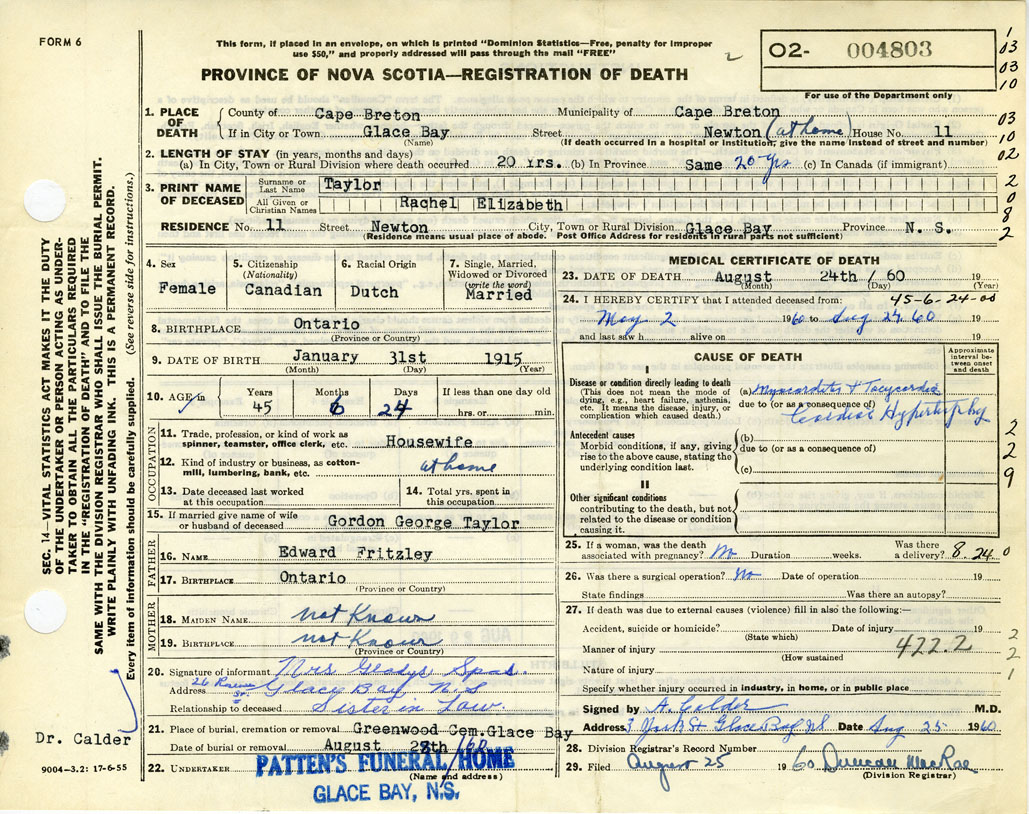 FORM 6
This form, if placed in an envelope, on which is printed "Dominion Statistics—Free, penalty for improper
use $50," and properly addressed will pass through the mail "FREE"
2
O2- 004803
For use of the Department only
PROVINCE OF NOVA SCOTIA—REGISTRATION OF DEATH
1
03
03
10
03
10
02
2
0
8
2
1. PLACE OF DEATH
County of Cape Breton Municipality of Cape Breton
If in City or Town Glace Bay Street Newton (at home) House No. 11
(Name) (If death occurred in a hospital or institution; give the name instead of street and number)
2. LENGTH OF STAY (in years, months and days)
(a) In City, Town or Rural Division where death occurred 20 Yrs. (b) In Province Same 20 Yrs (c) In Canada (if immigrant)
3. PRINT NAME OF DECEASED
Surname or Last Name Taylor
All Given or Christian Names Rachel Elizabeth
RESIDENCE No. 11 Street Newton City, Town or Rural Division Glace Bay Province N. S.
(Residence means usual place of abode. Post Office Address for residents in rural parts not sufficient)
4. Sex Female
5. Citizenship (Nationality) Canadian
6. Racial Origin Dutch
7. Single, Married, Widowed or Divorced (write the word) Married
8. BIRTHPLACE Ontario
(Province or Country)
9. DATE OF BIRTH January 31st 1915
(Month) (Day) (Year)
10. AGE in Years 45 Months 6 Days 24 If less than one day old hrs. or min.
OCCUPATION
11. Trade, profession, or kind of work as spinner, teamster, office clerk, etc. Housewife
12. Kind of industry or business, as cotton-mill, lumbering, bank, etc. at home
13. Date deceased last worked at this occupation
14. Total yrs. spent in this occupation
15. If married give name of wife or husband of deceased Gordon George Taylor
FATHER
16. NAME Edward Fritzley
17. BIRTHPLACE Ontario
(Province or Country)
MOTHER
18. MAIDEN NAME not Known
19. BIRTHPLACE not Known
(Province or Country)
20. Signature of informant Mrs Gladys
Address 26 St. Glace Bay N.S
Relationship to deceased Sister in Law.
21. Place of burial, cremation or removal Greenwood Cem. Glace Bay
Date of burial or removal August 28th /60
22. UNDERTAKER PATTEN'S FUNERAL HOME
(Name and address)
GLACE BAY, N.S.
MEDICAL CERTIFICATE OF DEATH
23. DATE OF DEATH August 24th / 60 19
(Month) (Day) (Year)
24. I HEREBY CERTIFY that I attended deceased from: 45-6-24-00
May 2 1960 to Aug 24 60 19
and last saw h alive on 19
CAUSE OF DEATH
Approximate interval between onset and death
I
Disease or condition directly leading to death
(This does not mean the mode of dying, e.g., heart failure, asthenia, etc. It means the disease, injury, or complication which caused death.)
(a) Myocarditis + Tacycardia
due to (or as a consequence of) Cardiac Hypertrophy
Antecedent causes
Morbid conditions, if any, giving rise to the above cause, stating the underlying condition last.
(b)
due to (or as a consequence of)
(c)
II
Other significant conditions
contributing to the death, but not related to the disease or condition causing it.
2
2
9
25. If a woman, was the death associated with pregnancy? No Duration weeks. Was there a delivery? 8 24 0
26. Was there a surgical operation? No Date of operation 19
State findings Was there an autopsy?
27. If death was due to external causes (violence) fill in also the following:—
Accident, suicide or homicide? Date of injury 19
(State which)
Manner of injury 422.2
(How sustained)
Nature of injury
2
2
1
Specify whether injury occurred in industry, in home, or in public place
Signed by A. Calder M.D.
Address 3 York St Glace Bay NS Date Aug 25 1960
28. Division Registrar's Record Number
29. Filed August 25 1960 Duncan MacRae
(Division Registrar)
SEC. 14—VITAL STATISTICS ACT MAKES IT THE DUTY
OF THE UNDERTAKER OR PERSON ACTING AS UNDER-
TAKER TO OBTAIN ALL THE PARTICULARS REQUIRED
IN THE "REGISTRATION OF DEATH" AND TO FILE THE
SAME WITH THE DIVISION REGISTRAR WHO SHALL ISSUE THE BURIAL PERMIT.
WRITE PLAINLY WITH UNFADING INK. THIS IS A PERMANENT RECORD.
Every item of information should be carefully supplied. (See reverse side for instructions.)
Dr. Calder
9004-3.2: 17-6-55